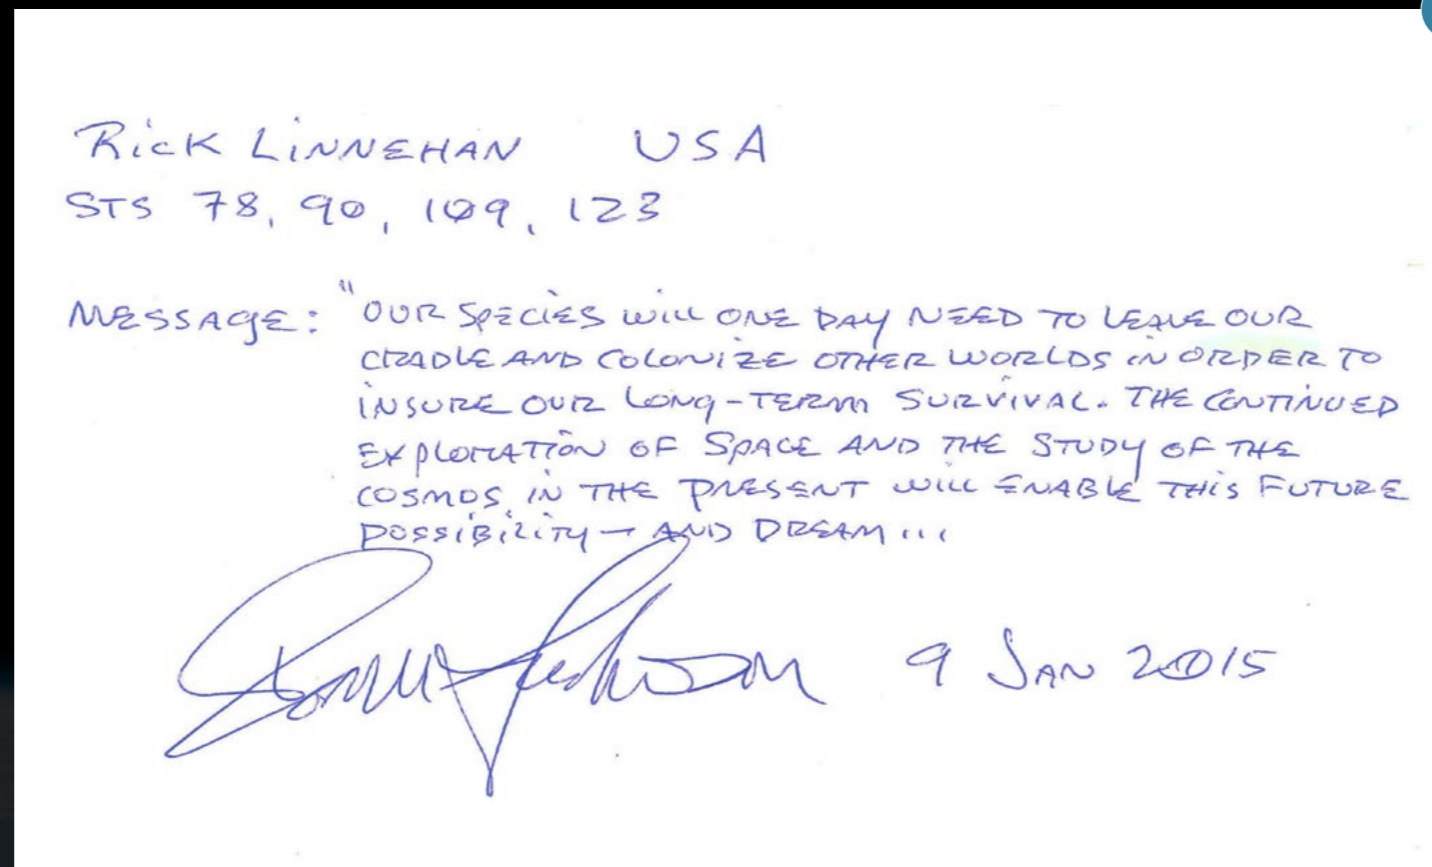 Rick LINNEHAN USA
STS 78, 90, 109, 123
MESSAGE: "OUR SPECIES WILL ONE DAY NEED TO LEAVE OUR
CRADLE AND COLONIZE OTHER WORLDS IN ORDER TO
INSURE OUR LONG-TERM SURVIVAL. THE CONTINUED
EXPLORATION OF SPACE AND THE STUDY OF THE
COSMOS IN THE PRESENT WILL ENABLE THIS FUTURE
POSSIBILITY - AND DREAM...
9 JAN 2015